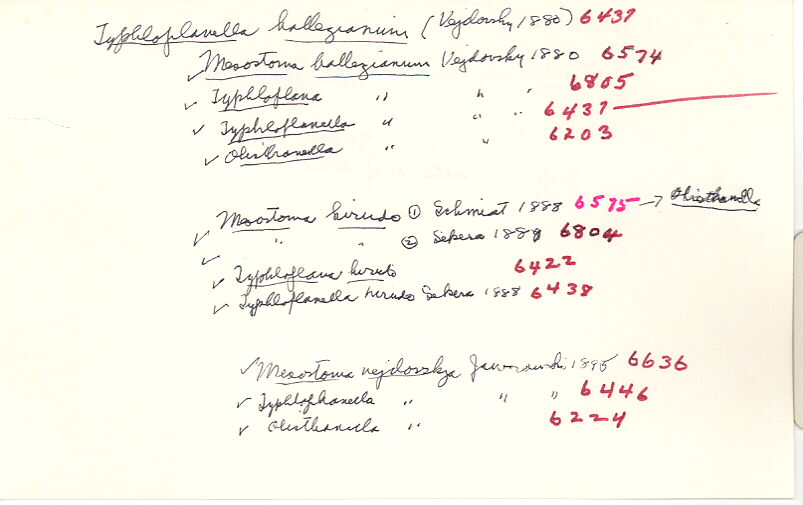 Typhloplanella hallezianum (Vejdovsky 1880) 6437
✓ Mesostoma hallezianum Vejdovsky 1880 6574
✓ Typhloplana " " " 6805
✓ Typhloplanella " " " 6437
✓ Olisthanella " " 6203
✓ Mesostoma hirudo ① Schmidt 1888 6575 → Olisthanella
✓ " " ② Sekera 1888 6804
✓ Typhloplana hirudo 6422
✓ Typhloplanella hirudo Sekera 1888 6438
✓ Mesostoma vejdovskya Jaworowski, 1895 6636
✓ Typhloplanella " " " 6446
✓ Olisthanella " 6224